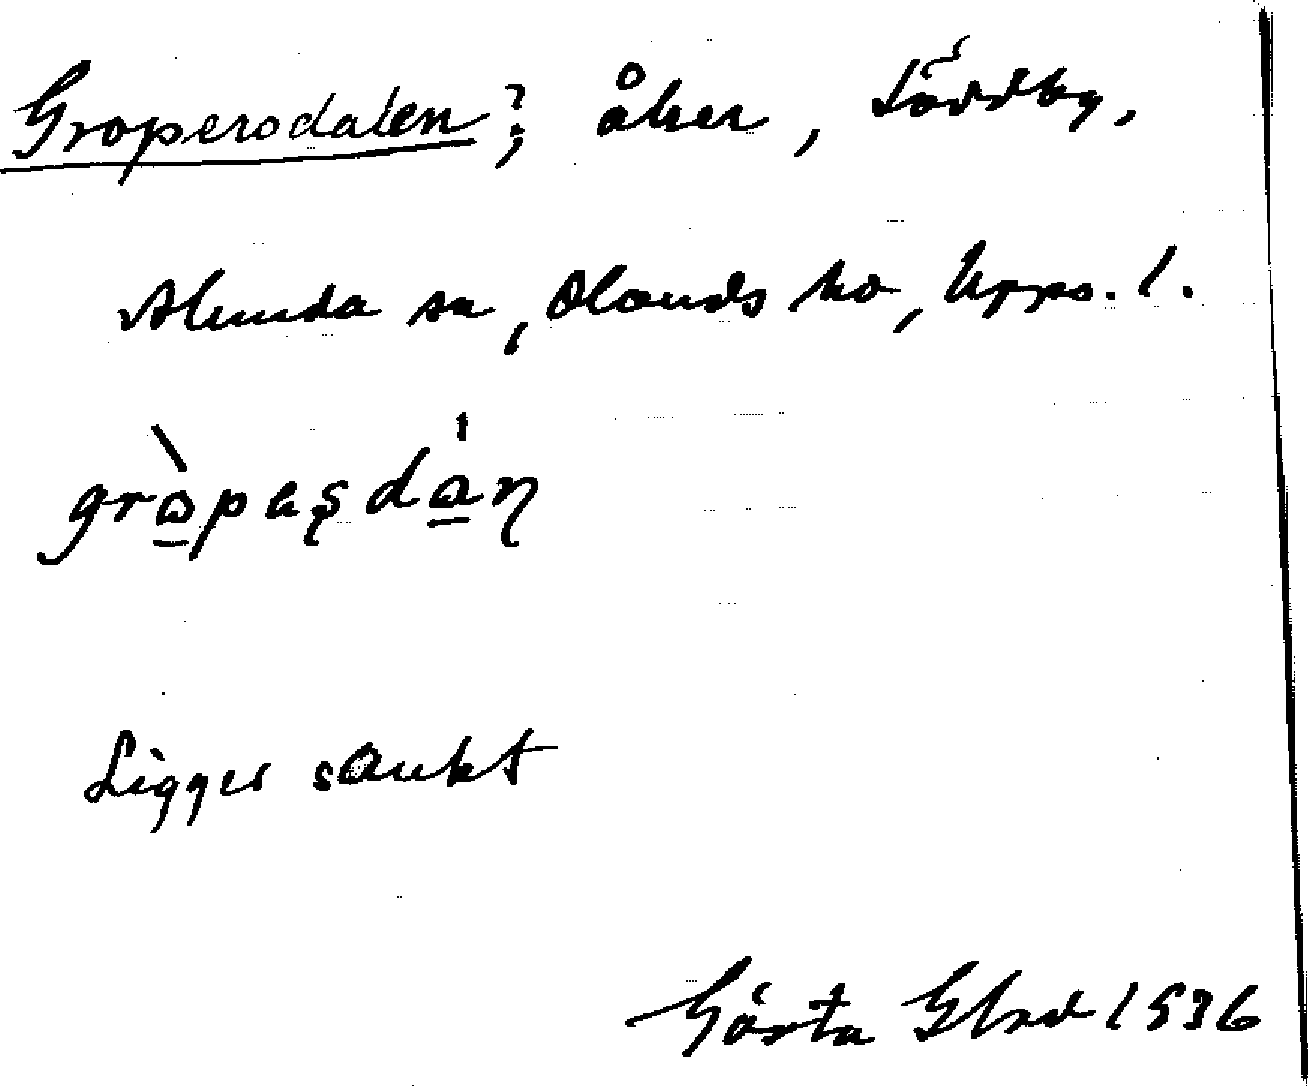 Gropersdalen?, åker, Söddby,
Alunda sn, Olands hd, Upps. l.
gròpaşdàn
Ligger sankt
Gösta 1936